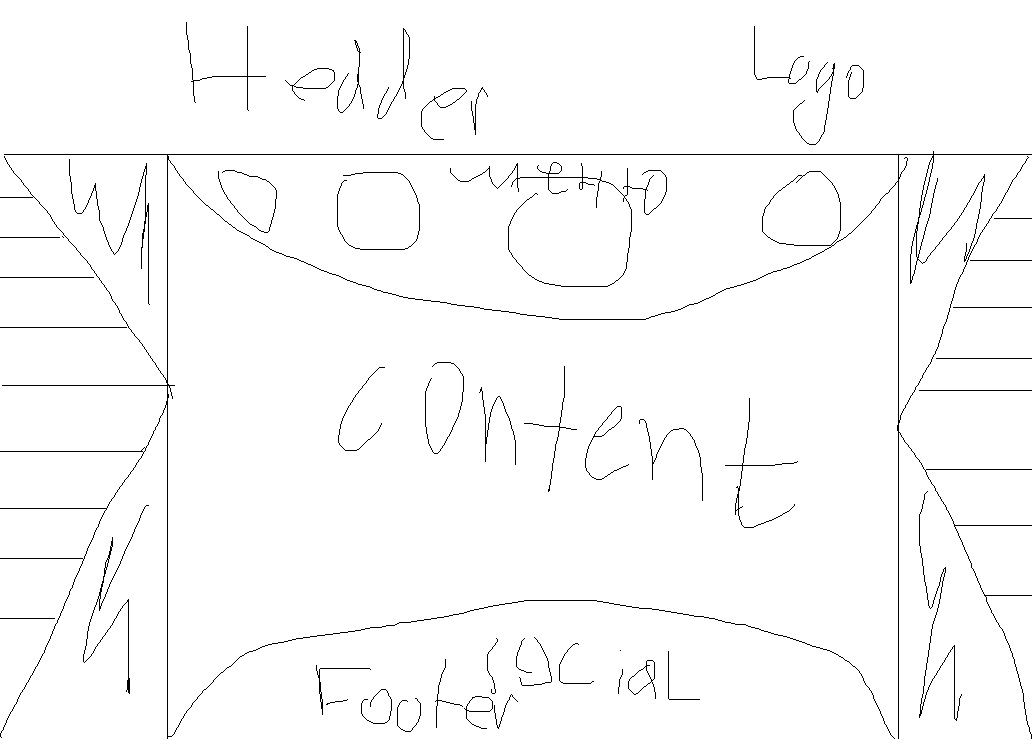 Hedder
Logo
content
social
Footer